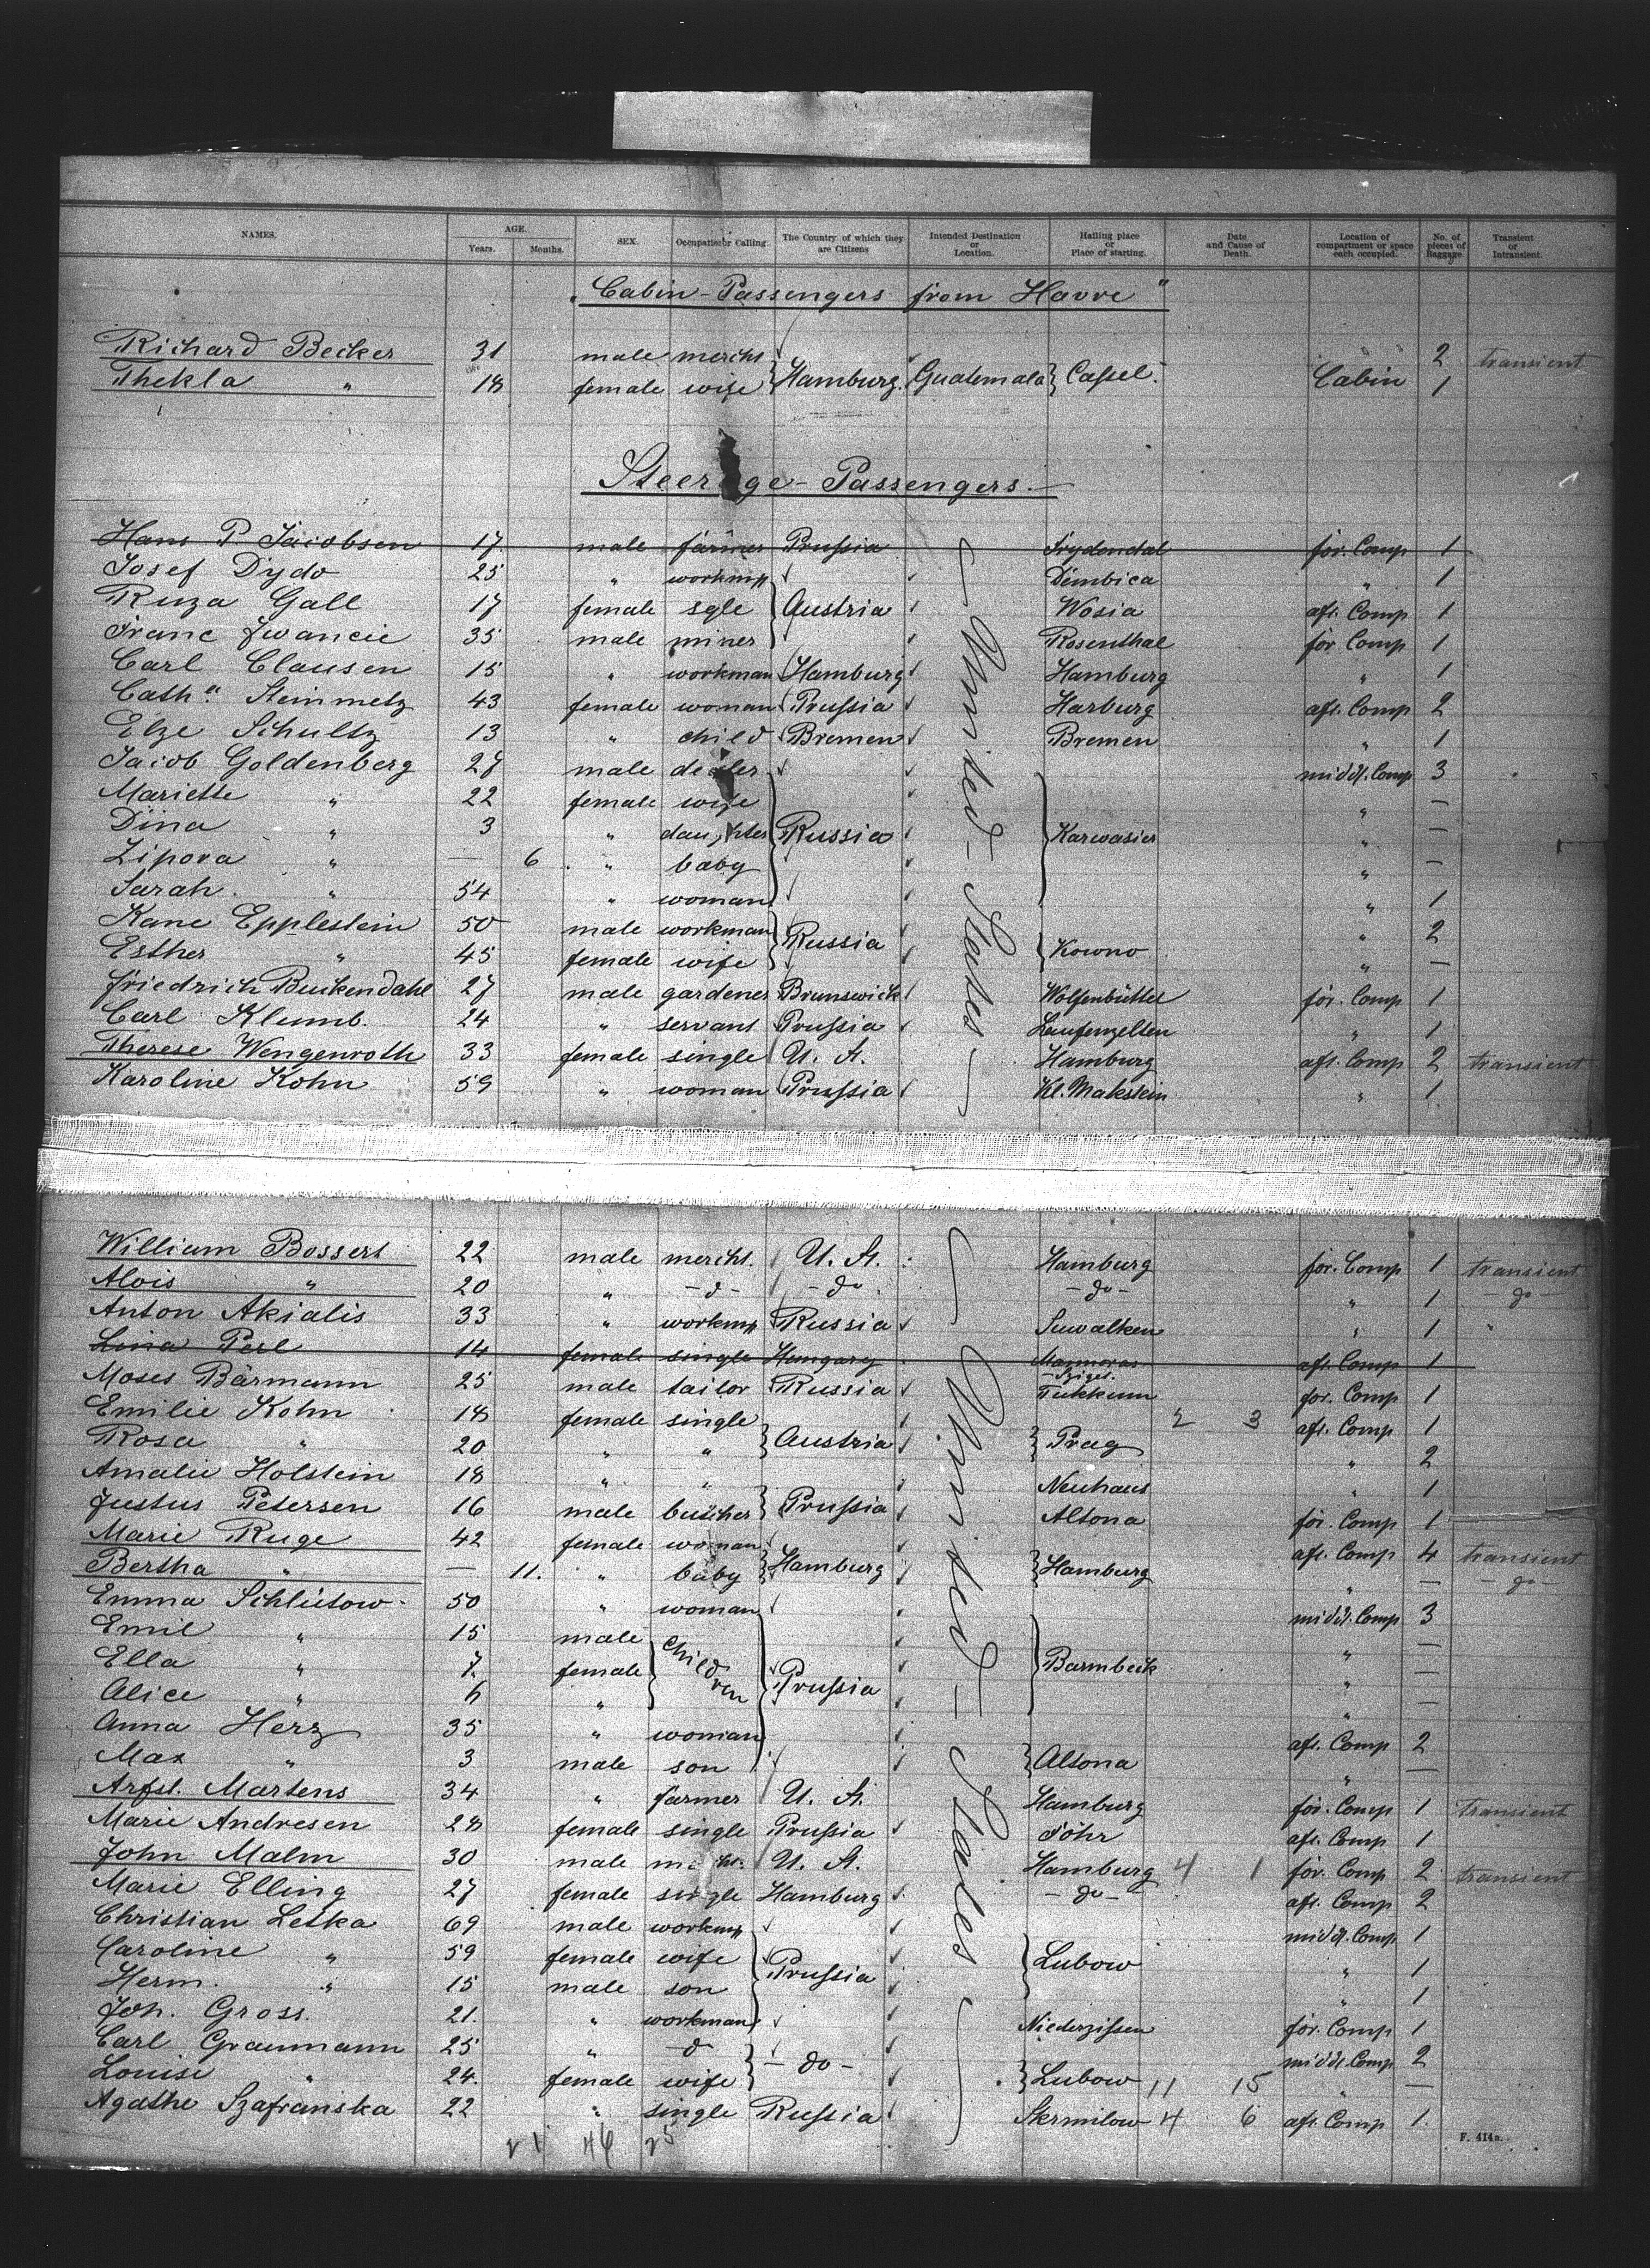 NAMES. AGE. Years. Months. SEX. Occupation or Calling. The Country of which they are Citizens Intended Destination or Location. Hailing place or Place of starting. Date and Cause of Death. Location of compartment or space each occupied. No. of pieces of Baggage. Transient or Intransient.
"Cabin-Passengers from Havre"
Richard Becker 31 male mercht 2 transient
Thekla " 18 female wife Hamburg. Guatemala Cassel. Cabin 1
Steerage-Passengers.
Hans P. Jacobsen 17 male farmer Prussia Frydendal for. Comp 1
Josef Dydo 25 " workmn Dembica " 1
Ruza Gall 17 female sgle Austria Wosia aft. Comp 1
Franc Zwancie 35 male miner Rosenthal for Comp 1
Carl Clausen 15 " workman Hamburg Hamburg " 1
Cath.a Steinmetz 43 female woman Prussia Harburg aft. Comp 2
Elze Schultz 13 " child Bremen Bremen " 1
Jacob Goldenberg 27 male dealer middl. Comp 3
Mariette " 22 female wife " —
Dina " 3 " daughter Russia Karwasier " —
Zipora " — 6 " baby " —
Sarah " 54 " woman " 1
Kane Epplestein 50 male workman Russia " 2
Esther " 45 female wife Kowno " —
Friedrich Buikendahl 27 male gardener Brunswick Wolfenbüttel for. Comp 1
Carl Klumb. 24 " servant Prussia Laufenzelten " 1
Therese Wengenroth 33 female single U. St. Hamburg aft. Comp 2 transient
Karoline Kohn 59 " woman Prussia Kl. Makstein " 1
United-States
William Bossert 22 male mercht. U. St. Hamburg for. Comp 1 transient
Alois " 20 " -d- -do- -do- " 1 -do-
Anton Akialis 33 " workmn Russia Suwalken " 1
Lina Perl 14 female single Hungary Marmoros Sziget. aft. Comp 1
Moses Bärmann 25 male tailor Russia Tukkum for. Comp 1
Emilie Kohn 18 female single 2 3 aft. Comp 1
Rosa " 20 " " Austria Prag " 2
Amalie Holstein 18 " " Neuhaus " 1
Justus Petersen 16 male butcher Prussia Altona for. Comp 1
Marie Ruge 42 female woman aft. Comp 4 transient
Bertha " — 11. " baby Hamburg Hamburg " — -do-
Emma Schlütow 50 " woman middl. Comp 3
Emil " 15 male " —
Ella " 7. female children Prussia Barmbeck " —
Alice " 6 " " —
Anna Herz 35 " woman aft. Comp 2
Max " 3 male son Altona " —
Arfst. Martens 34 " farmer U. St. Hamburg for. Comp 1 transient
Marie Andresen 28 female single Prussia Föhr aft. Comp 1
John Malm 30 male U. St. Hamburg 4 1 for. Comp 2 transient
Marie Elling 27 female single Hamburg -do- aft. Comp 2
Christian Letka 69 male workmn middl. Comp 1
Caroline " 59 female wife Prussia Lubow " 1
Herm. " 15 male son " 1
Joh. Gross. 21. " workman Niederzissen for. Comp 1
Carl Graumann 25 " -d- -do- middl. Comp 2
Louise " 24. female wife Lubow 11 15 " —
Agathe Szafranska 22 " single Russia Skrmilow 4 6 aft. Comp 1.
United-States
21 46 25
F. 414a.